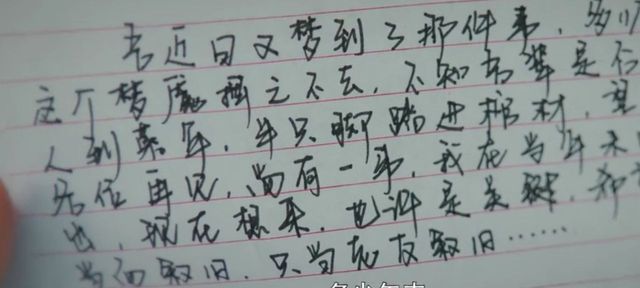 吾近日又梦到了那件事，多
这个梦魇挥之不去，不知吾辈是否
人到暮年，半只脚踏进棺材，
诸位再见，尚有一事，我在当年未
也，现在想来，也许是关键，
当面叙旧，只当老友叙旧……